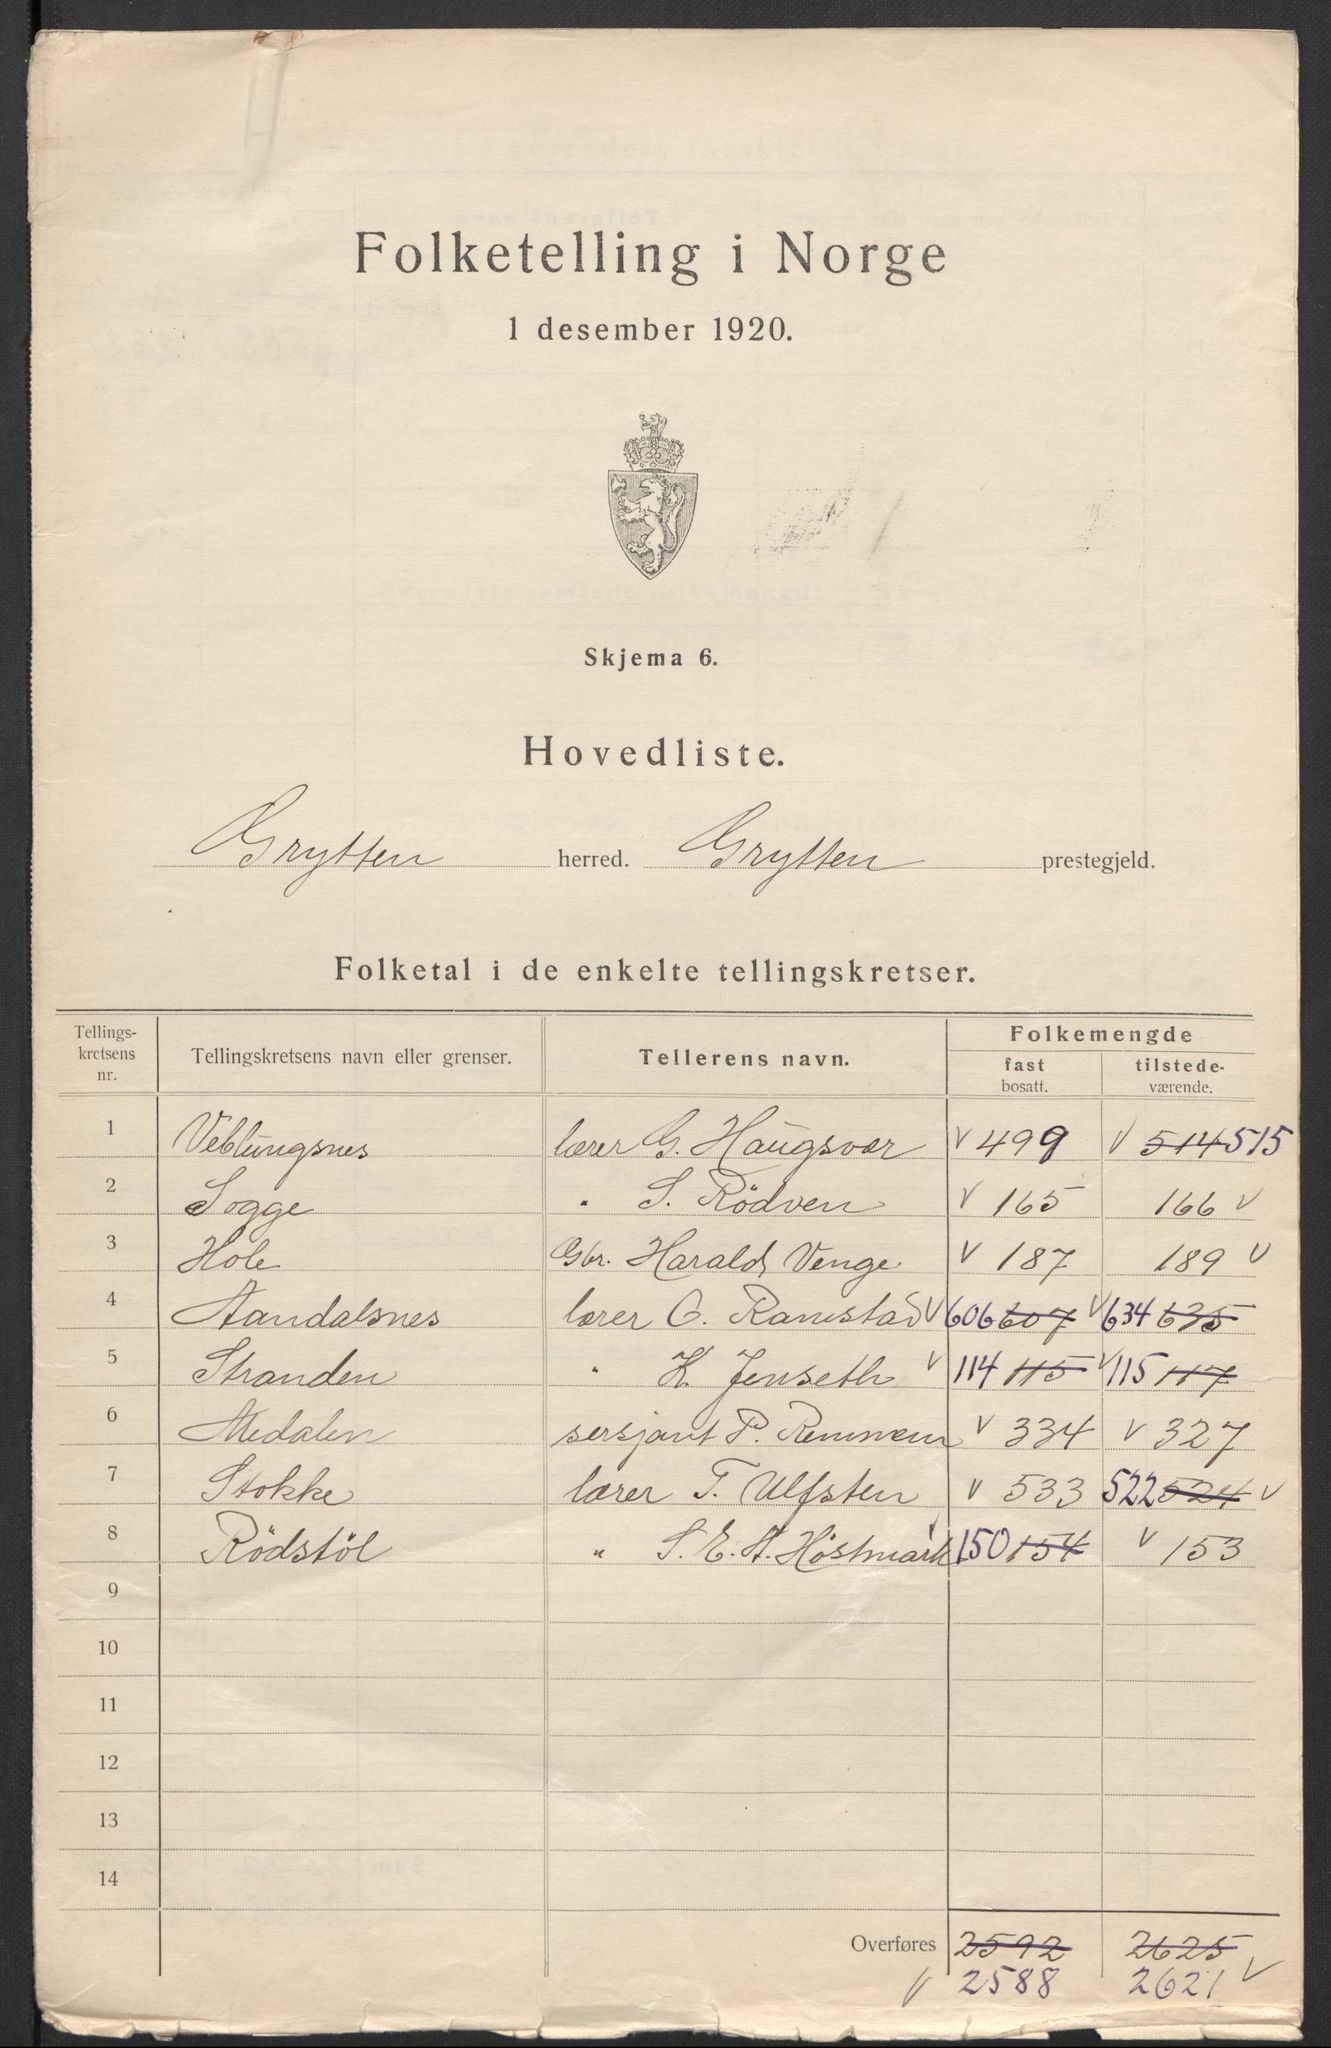 Folketelling i Norge
1 desember 1920.
Skjema 6.
Hovedliste.
Grytten herred. Grytten prestegjeld.
Folketal i de enkelte tellingskretser.
Tellings-kretsens nr. Tellingskretsens navn eller grenser. Tellerens navn. Folkemengde
fast bosatt. tilstede-værende.
1 Veblungsnes lærer G. Haugsvær v 499 v 514 515
2 Sogge " S. Rödven v 165 166 v
3 Hole Gbr. Harald Venge v 187 189 v
4 Aandalsnes lærer O. Ramstad v 606 607 v 634 635
5 Stranden " K. Jenseth v 114 115 v 115 117
6 Medalen sersjant P. Remmem v 334 v 327
7 Stokke lærer T. Ulfsten v 533 522 524 v
8 Rödstöl " S. E. A. Höstmark v 150 154 v 153
9
10
11
12
13
14
Overføres 2592 2625
v 2588 2621 v